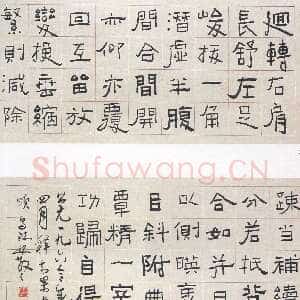 迴轉右肩
長舒左足
峻拔一角
潛虛半腹
間合間開
亦仰亦覆
回互留放
變換垂縮
繁則減除
疏當補續
分若抵背
合如並目
以側映斜
以斜附曲
覃精一字
功歸自得
公元一九八六年
四月
Shufawang.CN